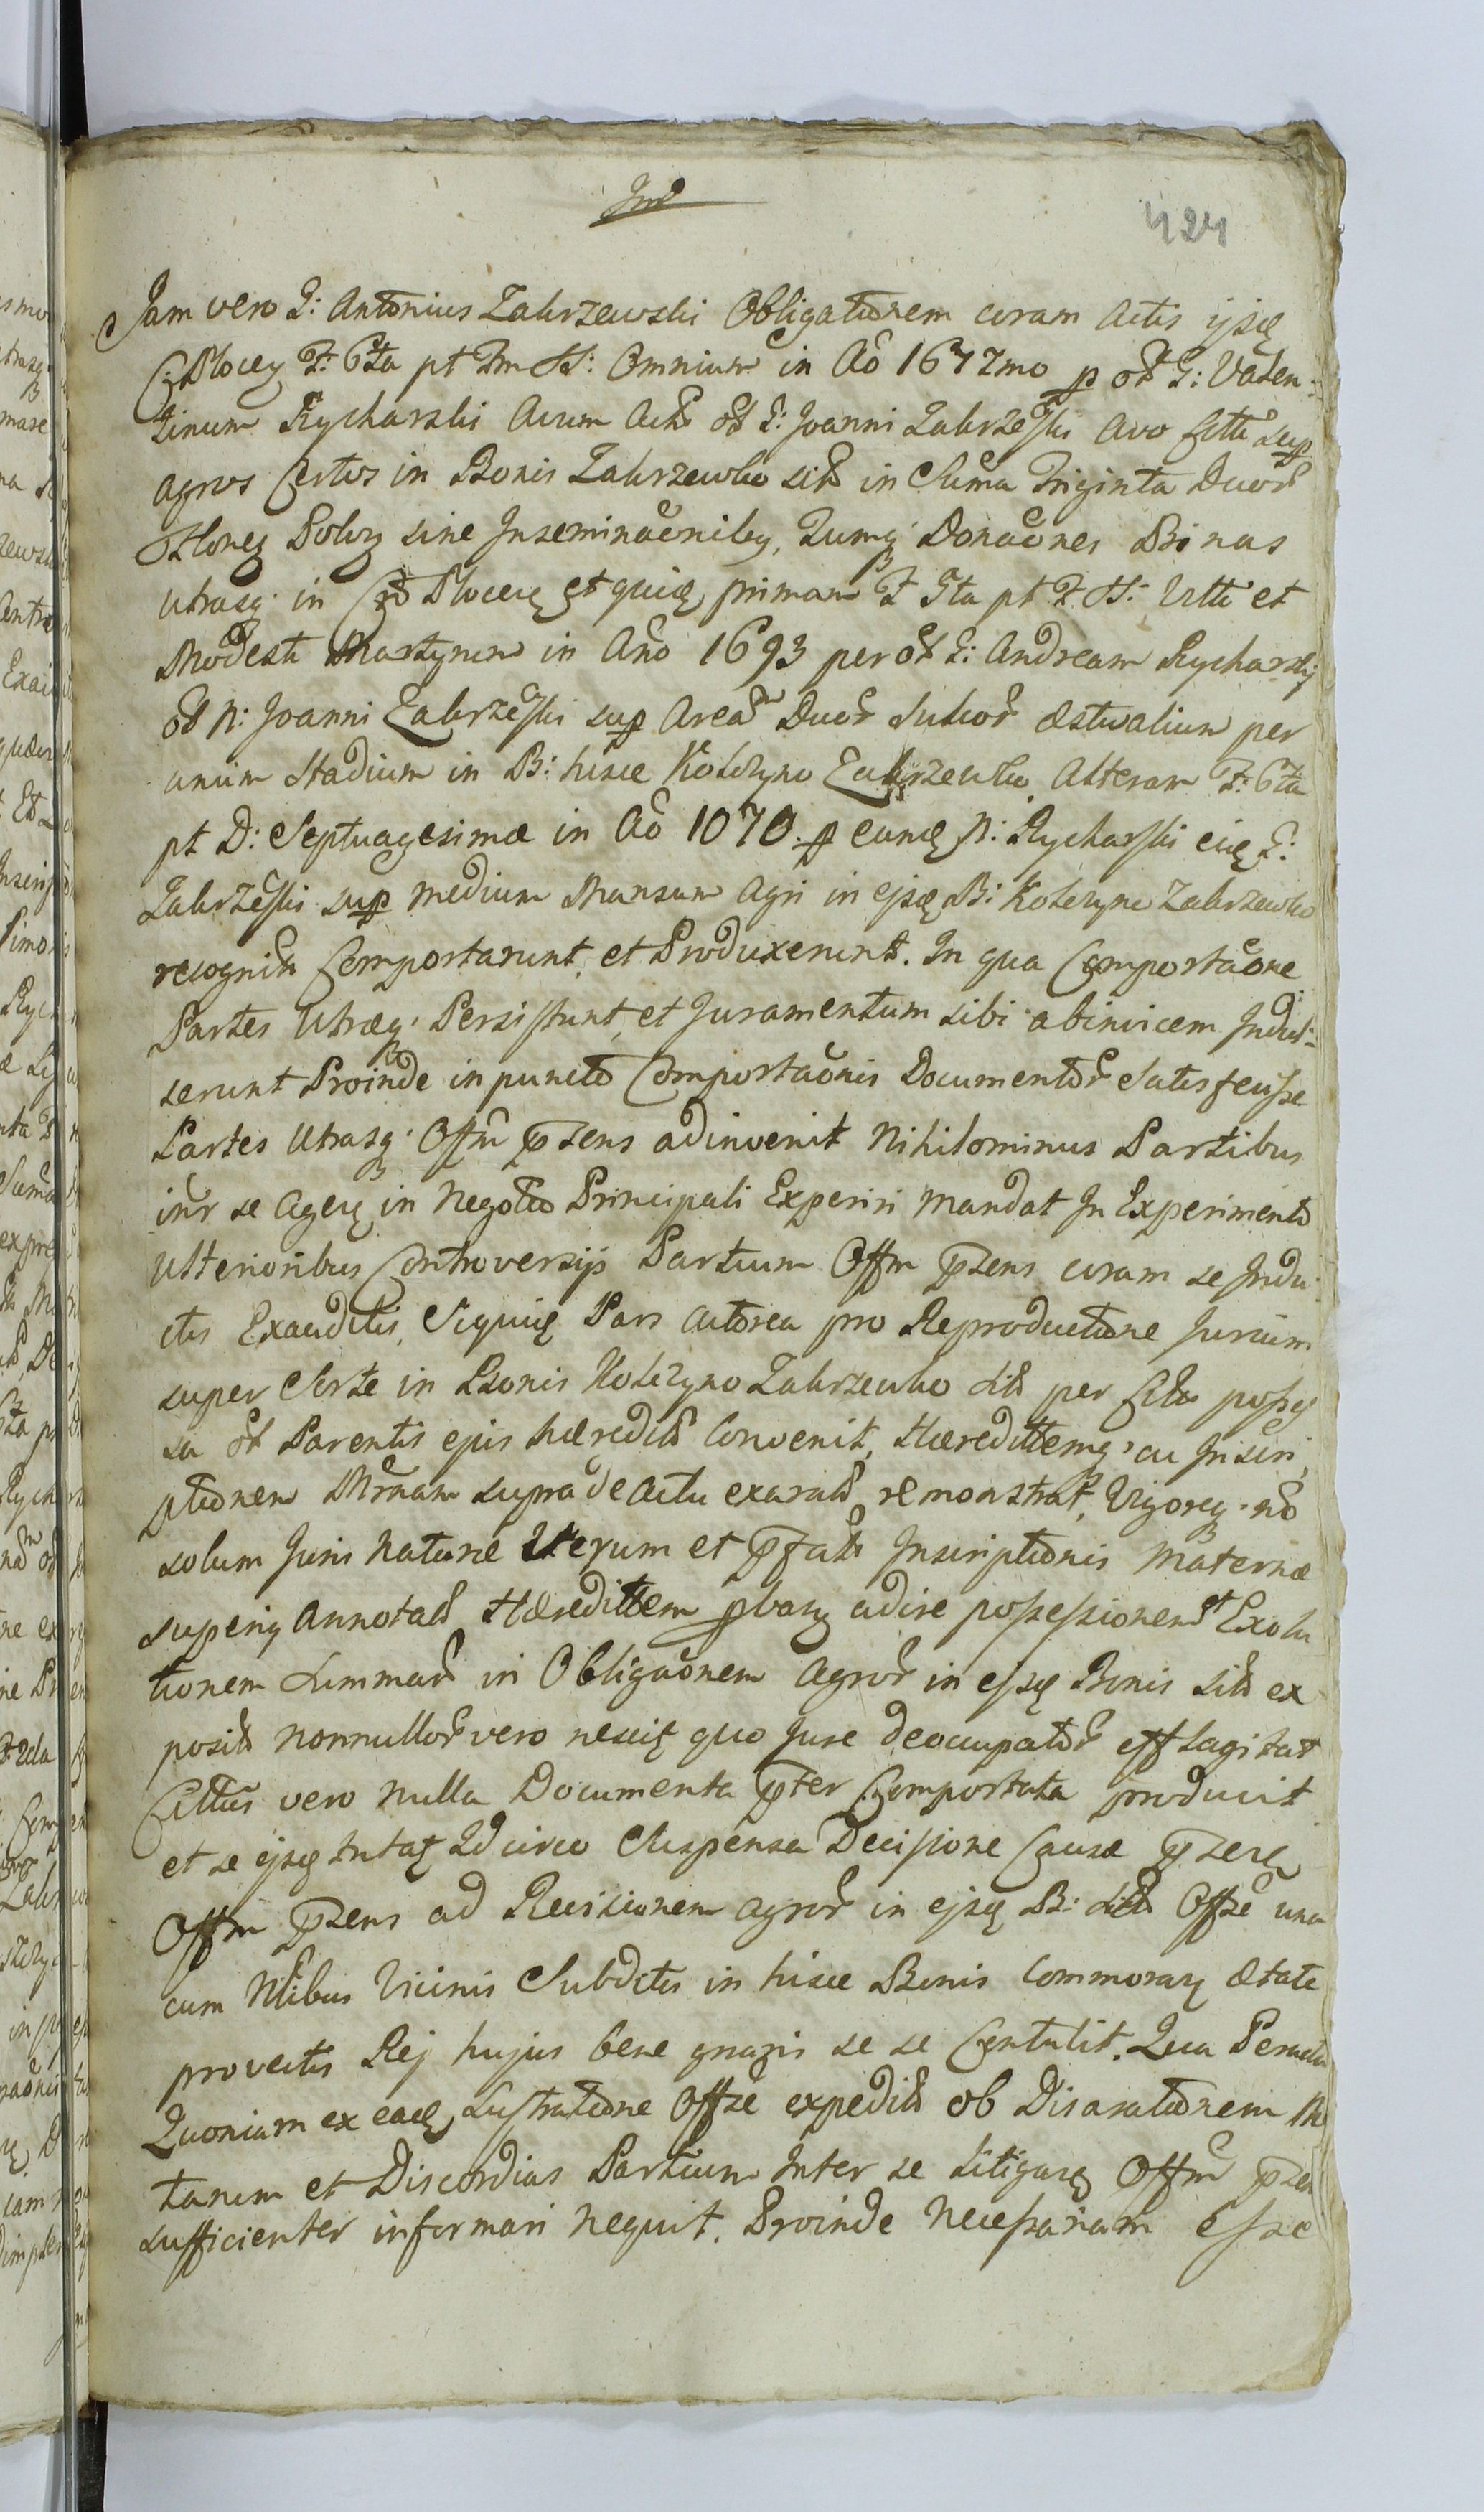 424
Jam vero G: Antonius Zakrzewski Obligationem coram Actis ijsdę
Plocen F: 6ta pt Fm SS: Omnium in Aõ 1672mo p oł G: Valen-
tinum Rycharski Avum Act oł G: Joanni Zakrzeski Avo Citti sup
agros Certos in Bonis Zakrzewko sitt in Suma Triginta Duor
Floren Polon sine Inseminaõnibg, Tumq Donaõnes Binas
utrasq in Plocen et quidę primam F 3ta pt F. SS: Vitti et
Modesti Martyrum in Anõ 1693 per oł G: Andream Rycharski
oł N: Joanni Zakrzeski sup Area Duor Sulcor æstivalium per
unum Stadium in B: hisce Kobelzyno Zakrzewko, Alteram F: 6ta
pt D: Septuagesimæ in Aõ 1070. p eundę N: Rycharski eidę G:
Zakrzeski sup medium Mansum Agri in ejsdę B: Zakrzewko
recognitt Comportarunt, et Produxerunt. In qua Comportaõne
Partes Utræq Persistunt, et Juramentum sibi abinvicem Indul-
serunt Proinde in puncto Comportaõnis Documentor Satisfecisse
Partes Utrasq Offm pzens adinvenit Nihilominus Partibus
intr se Agere in Negotio Principali Experiri Mandat In Experimento
Ulterioribus Controversijs Partium Offm pzens coram se Indu-
ctis Exauditis, Siquidę Pars Actorea pro Reproductione Jurium
super Sorte in Bonis Zakrzewko sitt per Citt posses
sa oł Parentis ejus hæreditt Convenit, Hæredittemq ac Inscri
ptionem Mrnam supra de actu exaratt remonstrat, Vigoreq nõ
solum Juris Naturæ Verum et pfatt Inscriptionis Maternæ
superiq Annotatt Hæredittem pbare adire possessionem et Exolu
tionem Summar in Obligaõnem Agror in ejsdę Bonis sitt ex
positt nonnullor vero nescit quo Jure deoccupator efflagitat
Cittus vero nulla Documenta pter Comportata producit
et se ijsdę tutat Idcirco Suspensa Decisione Causæ pzen
Offm pzens ad Revisionem Agror in ejsdę B: sitt Offse una
cum Nlibus Vicinis Subditis in hisce Bonis Commoran ætate
provectis Rej hujus bene gnaris se se Contulit. Qua Peracta
Quoniam ex eadę Lustratione Offse expeditt ob Disaratione
tarum et Discordias Partium Inter se Litigan Offm pzen
sufficienter informari nequit. Proinde Necessariam Esse